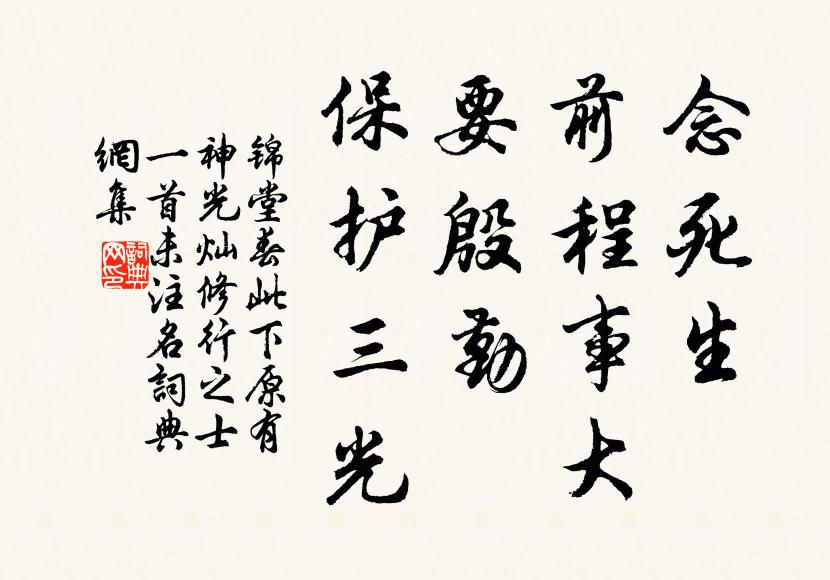 念死生
前程事大
要殷勤
保护三光
锦堂春此下原有
神光灿修行之士
一首未注名詞典
網集
詞典网印